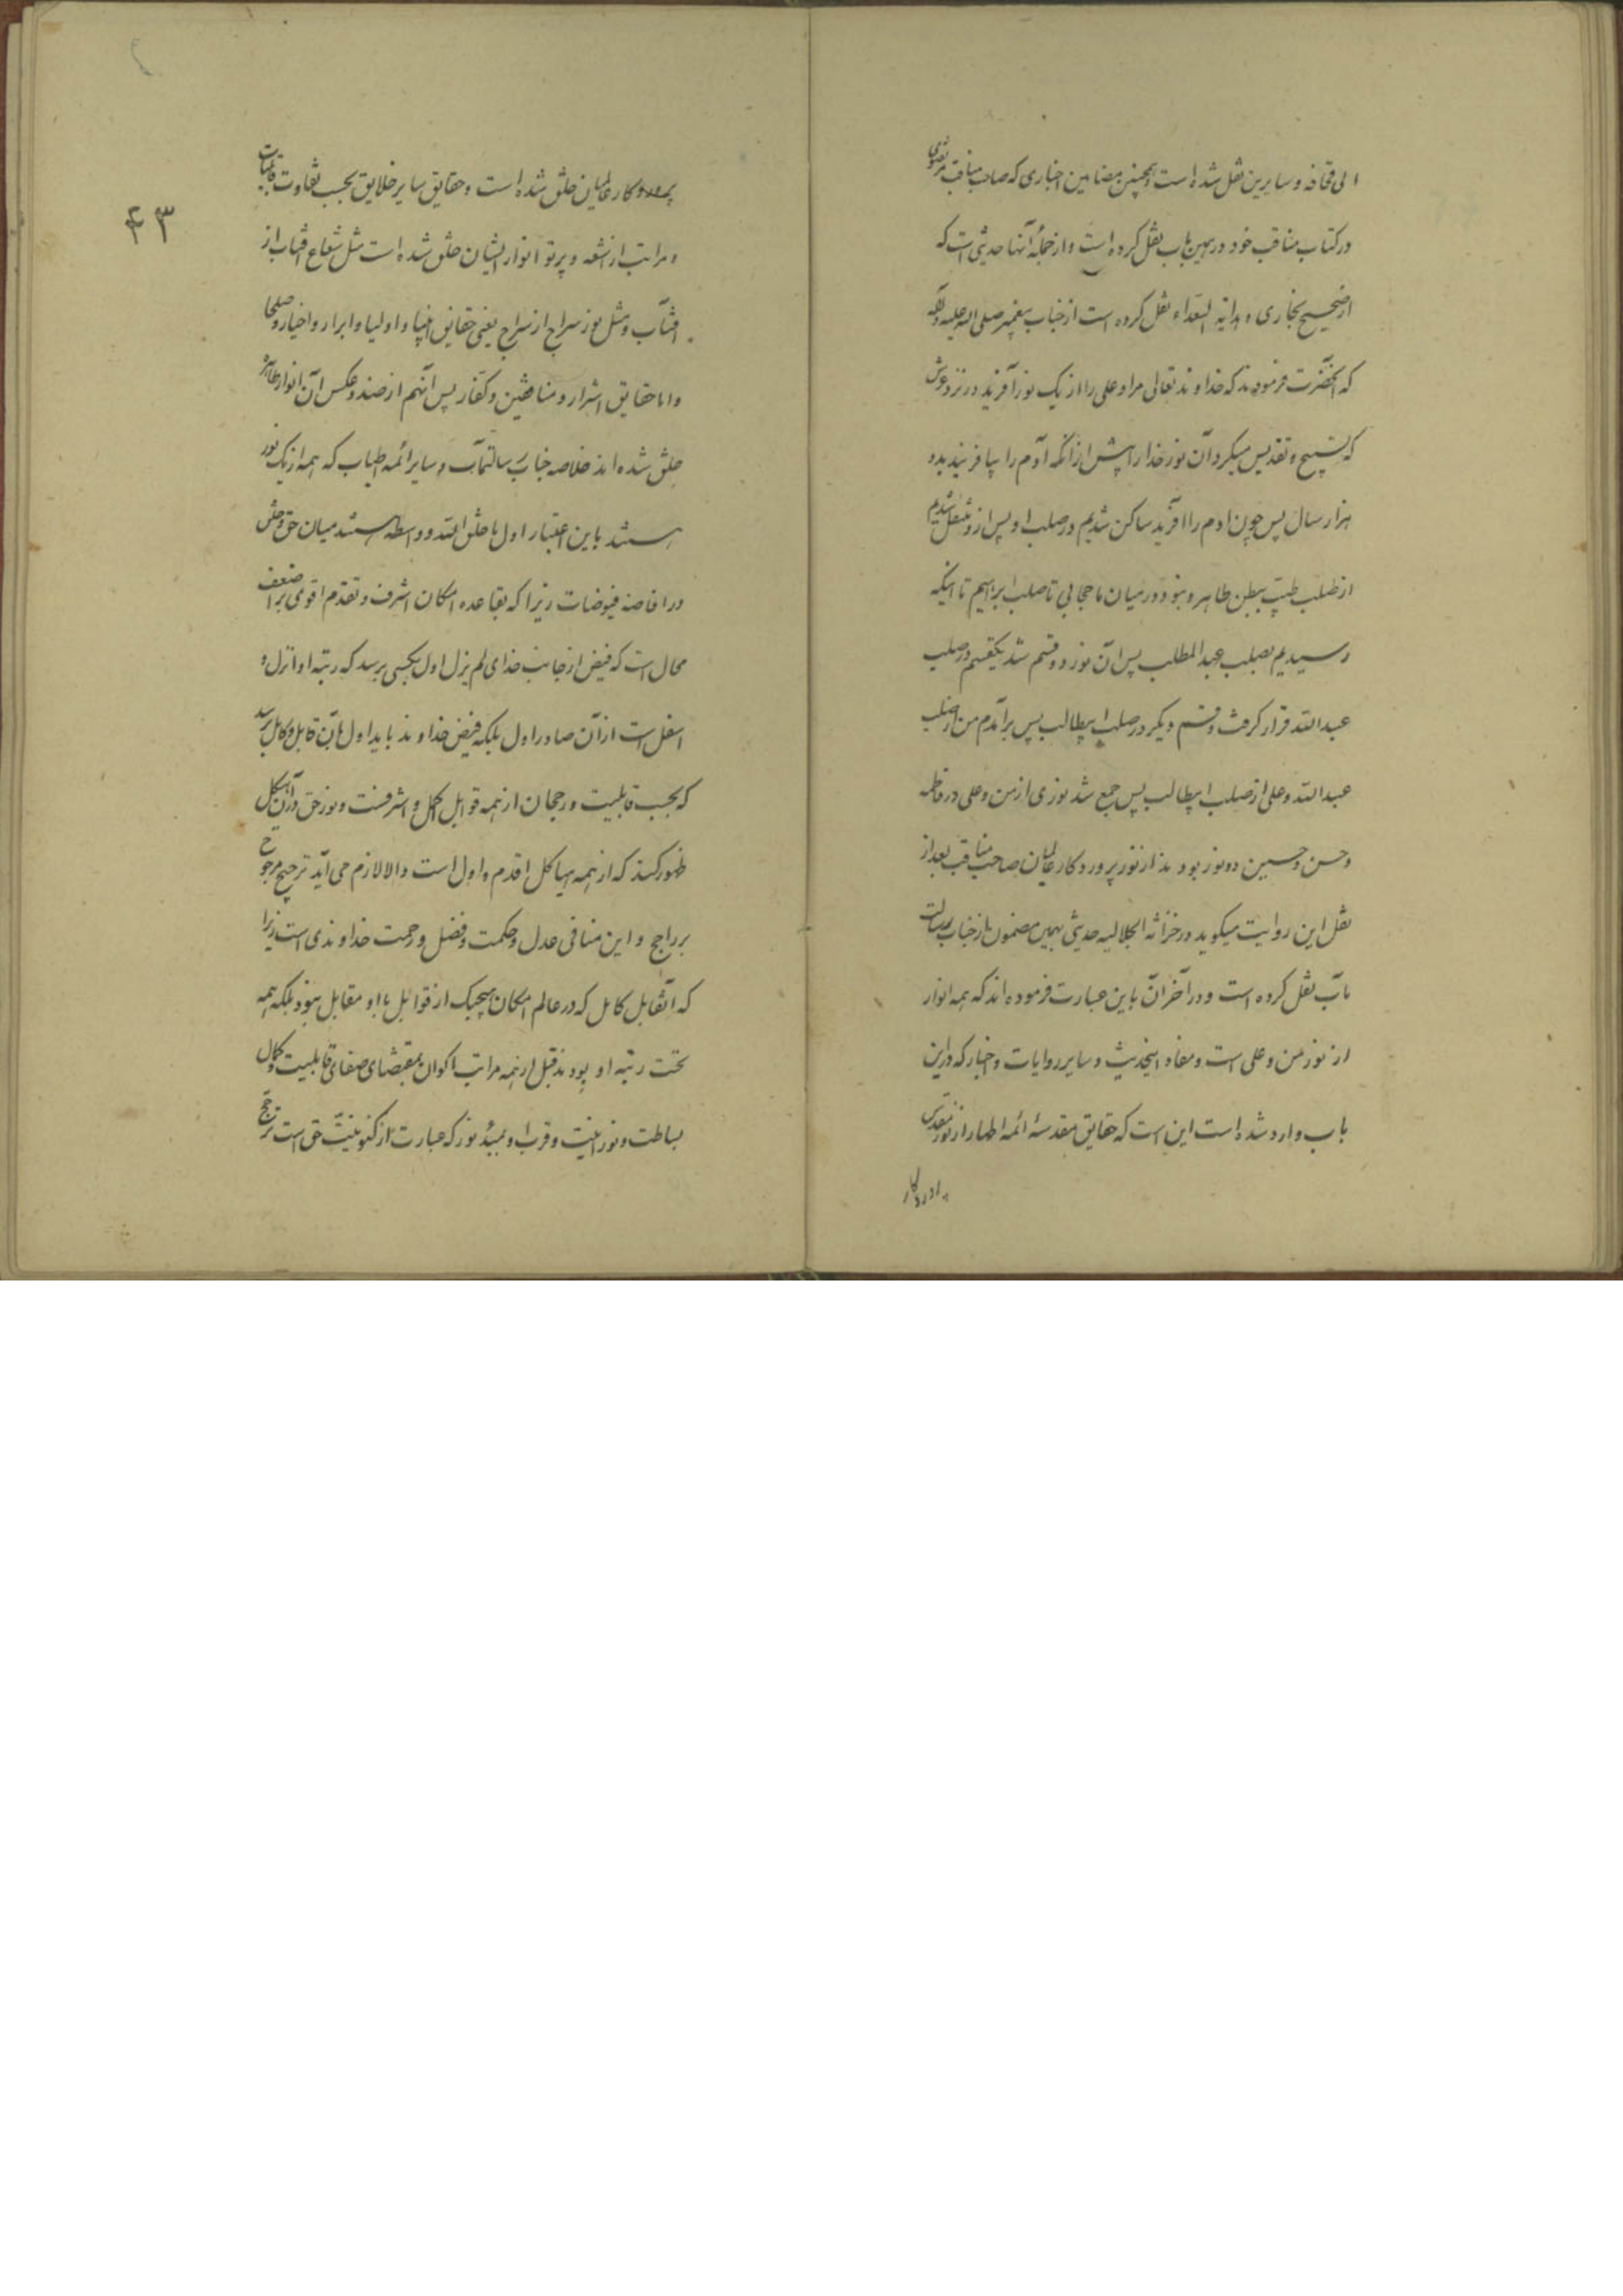 ابی قحافه و سایرین نقل شده است و همچنین مضامین اخباری که صاحب مناقب مرتضوی
در کتاب مناقب خود در همین باب نقل کرده است و از جمله آنها حدیثی است که
از صحیح بخاری و هدایة السعداء نقل کرده است از جناب پیغمبر صلی الله علیه و آله
که آنحضرت فرمودند که خداوند تعالی مرا و علی را از یک نور آفرید در نزد عرش
که تسبیح و تقدیس میکرد آن نور خدا را پیش از آنکه آدم را بیافرینند بدو
هزار سال پس چون ادم را افرید ساکن شدیم در صلب او پس از او منتقل شدیم
از صلب طیب ببطن طاهر و نبود در میان ما حجابی تا صلب ابراهیم تا اینکه
رسیدیم بصلب عبدالمطلب پس آن نور دو قسم شد یکقسم در صلب
عبدالله قرار گرفت و قسم دیگر در صلب ابیطالب پس برآمدم من از صلب
عبدالله و علی از صلب ابیطالب پس جمع شد نوری از من و علی در فاطمه
و حسن و حسین دو نور بودند از نور پروردگار عالمیان صاحب مناقب بعد از
نقل این روایت میگوید در خزانة الجلالیه حدیثی بهمین مضمون از جناب رسالت
مآب نقل کرده است و در آخر آن باین عبارت فرموده اند که همه انوار
از نور من و علی است و مفاد اینحدیث و سایر روایات و اخبار که در این
باب وارد شده است این است که حقایق مقدسهٔ ائمه اطهار از نور مقدس
پروردگار
۴۳
پروردگار عالمیان خلق شده است و حقایق سایر خلایق بحسب تفاوت قابلیات
و مراتب از اشعه و پرتو انوار ایشان خلق شده است مثل شعاع آفتاب از
آفتاب و مثل نور سراج از سراج یعنی حقایق انبیا و اولیا و ابرار و اخیار و صلحا
و اما حقایق اشرار و منافقین و کفار پس آنهم از ضد و عکس آن انوار طاهره
خلق شده اند خلاصه جناب رسالتمآب و سایر ائمه اطیاب که همه از یک نور
هستند باین اعتبار اول ما خلق الله و واسطه هستند میان حق و خلق
در افاضه فیوضات زیرا که بقاعده امکان اشرف و تقدم اقوی بر اضعف
محال است که فیض از جانب خدای لم یزل اول بکسی برسد که رتبه او انزل و
اسفل است از آن صادر اول بلکه فیض خداوند باید اول بآن قابل و کامل برسد
که بحسب قابلیت و رجحان از همه قوابل اکمل و اشرفست و نور حق در آن هیکل
ظهور کند که از همه هیاکل اقدم و اول است و الا لازم می آید ترجیح مرجوح
بر راجح و این منافی عدل و حکمت و فضل و رحمت خداوندی است زیرا
که آنقابل کامل که در عالم امکان هیچیک از قوابل با او مقابل نبود بلکه همه
تحت رتبه او بودند قبل از همه مراتب اکوان بمقتضای صفای قابلیت و کمال
بساطت و نورانیت و قرب او بمبدٔ نور که عبارت از کنونیت حق است ترجح